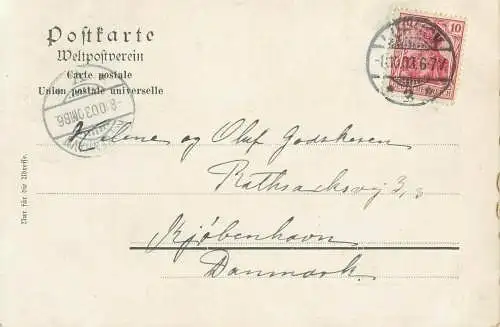 Postkarte
Weltpostverein
Carte postale
Union postale universelle
10
03.6-7V
-8.10.03.
Helene og Oluf Godskesen
Rathsacksvej 3,3
Kjöbenhavn
Danmark.
Nur für die Adresse.